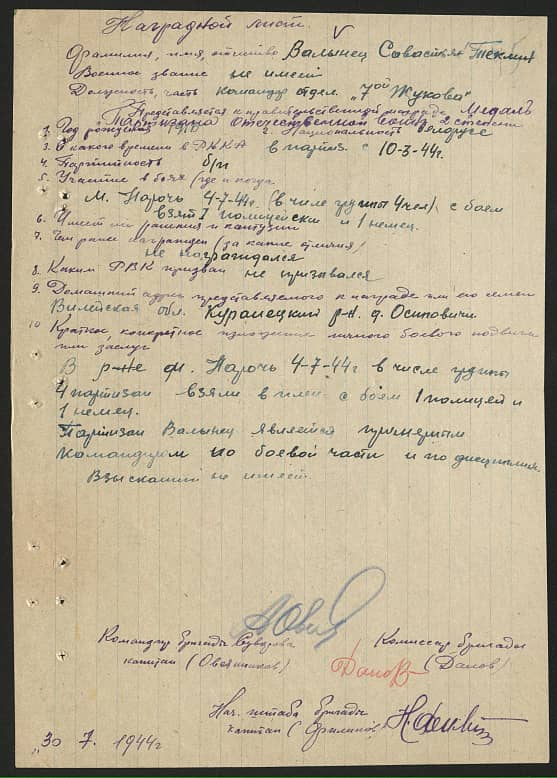 Наградной лист.
Фамилия, имя, отчество Валынец Савастьян
Военное звание не имеет
Должность, часть командир отдел. "7ой Жукова"
Представляется к правительственной награде Медаль
Партизана Отечественной войны 2 степени
1. Год рождения 2. Национальность белорус
3. С какого времени в РККА в партиз. с 10-3-44г.
4. Партийность б/п
5. Участие в боях (где и когда
М. Нарочь 4-7-44г. (в числе группы 4 чел) с боем
взят 1 полицейский и 1 немец.
6. Имеет ли ранения и контузии
7. Чем ранее награжден (за какие отличия)
не награждался
8. Каким РВК призван не призывался
9. Домашний адрес представляемого к награде или его семьи
Вилейская обл. Куранецкий р-н. д. Осиповичи
10 Краткое конкретное изложение личного боевого подвига
или заслуг
В р-не м. Нарочь 4-7-44г в числе группы
4 партизан взяли в плен с боем 1 полицей и
1 немец.
Партизан Валынец является примерным
командиром по боевой части и по дисциплине.
Взысканий не имеет.
Командир бригады Суворова Комиссар бригады
капитан (Овсянников) (Данов)
Нач. штаба бригады
капитан (Филипов)
"30 7. 1944г